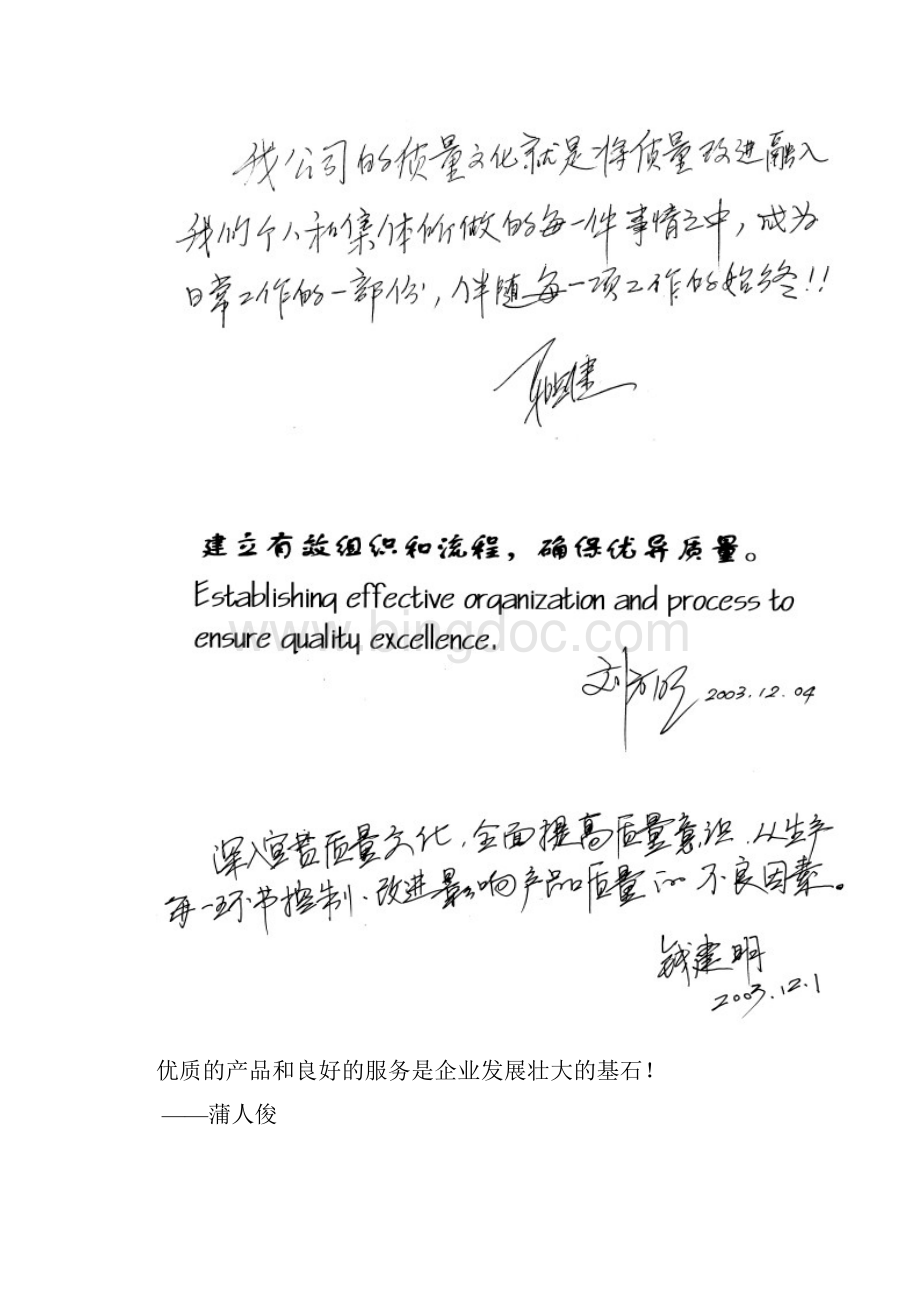 我公司的质量文化就是将质量改进融入
我们个人和集体所做的每一件事情之中,成为
日常工作的一部份,伴随每一项工作的始终!!
建立有效组织和流程,确保优异质量。
Establishing effective organization and process to
ensure quality excellence.
www.bingdoc.com
2003.12.04
深入宣贯质量文化,全面提高质量意识,从生产
每一环节控制、改进影响产品质量的不良因素。
钱建明
2003.12.1
优质的产品和良好的服务是企业发展壮大的基石!
——蒲人俊